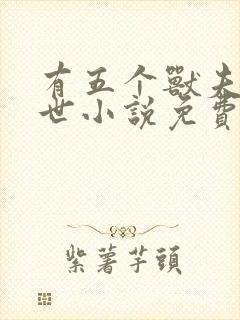 有五个獸夫
世小說免費
紫薯芋頭